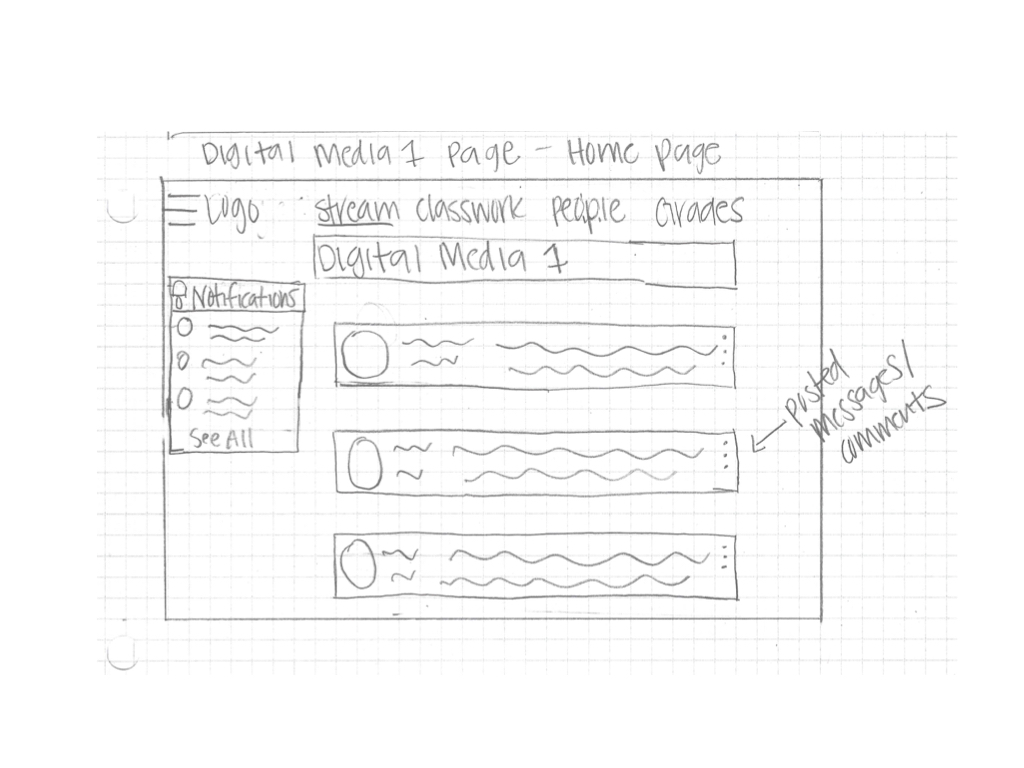 Digital Media 1 Page - Home Page
Logo stream classwork people Grades
Digital Media 1
Notifications
See All
posted
messages/
comments